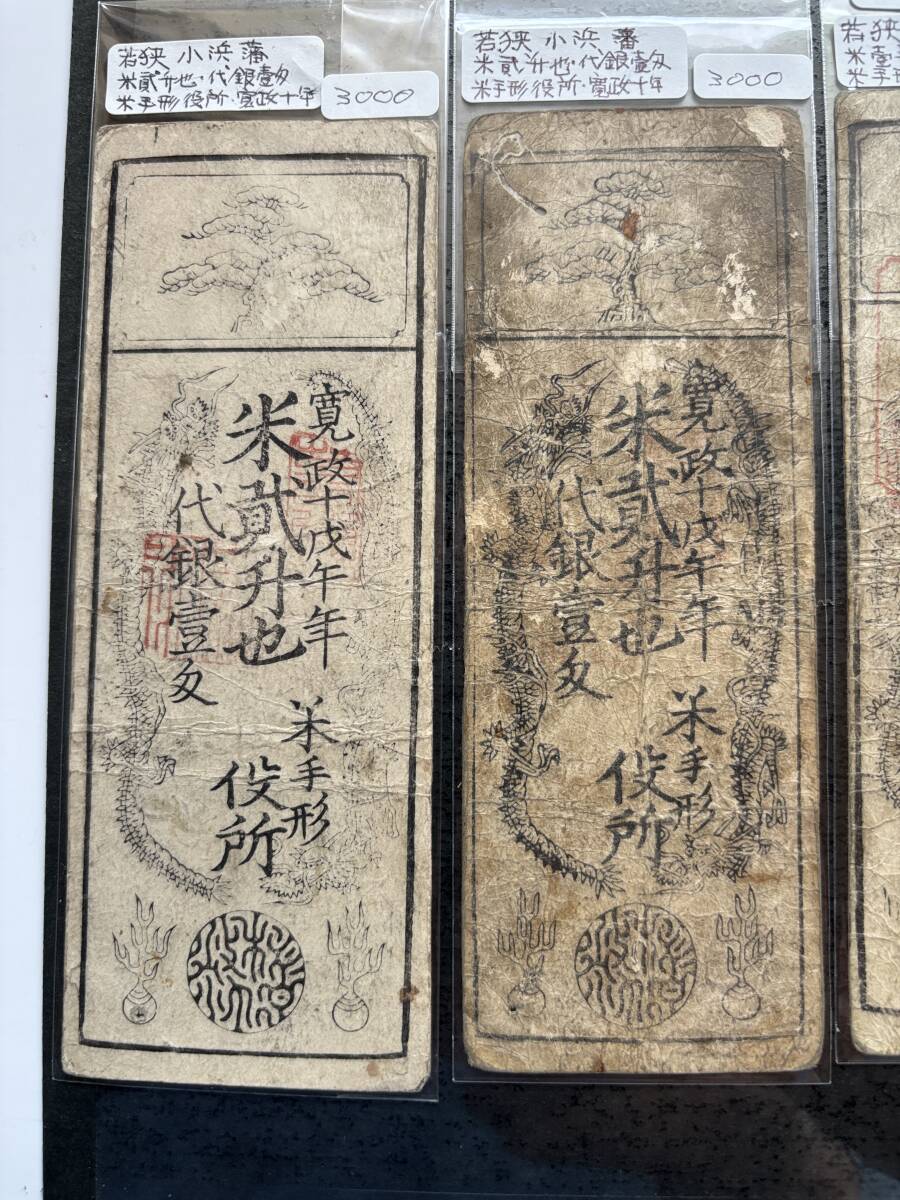 若狭 小浜藩
米貳升也・代銀壹匁
米手形役所・寛政十年
3000
寛政十戊午年
米貳升也
代銀壹匁
米手形
役所
若狭 小浜藩
米貳升也・代銀壹匁
米手形役所・寛政十年
3000
寛政十戊午年
米貳升也
代銀壹匁
米手形
役所
若狭
米壹
米手形